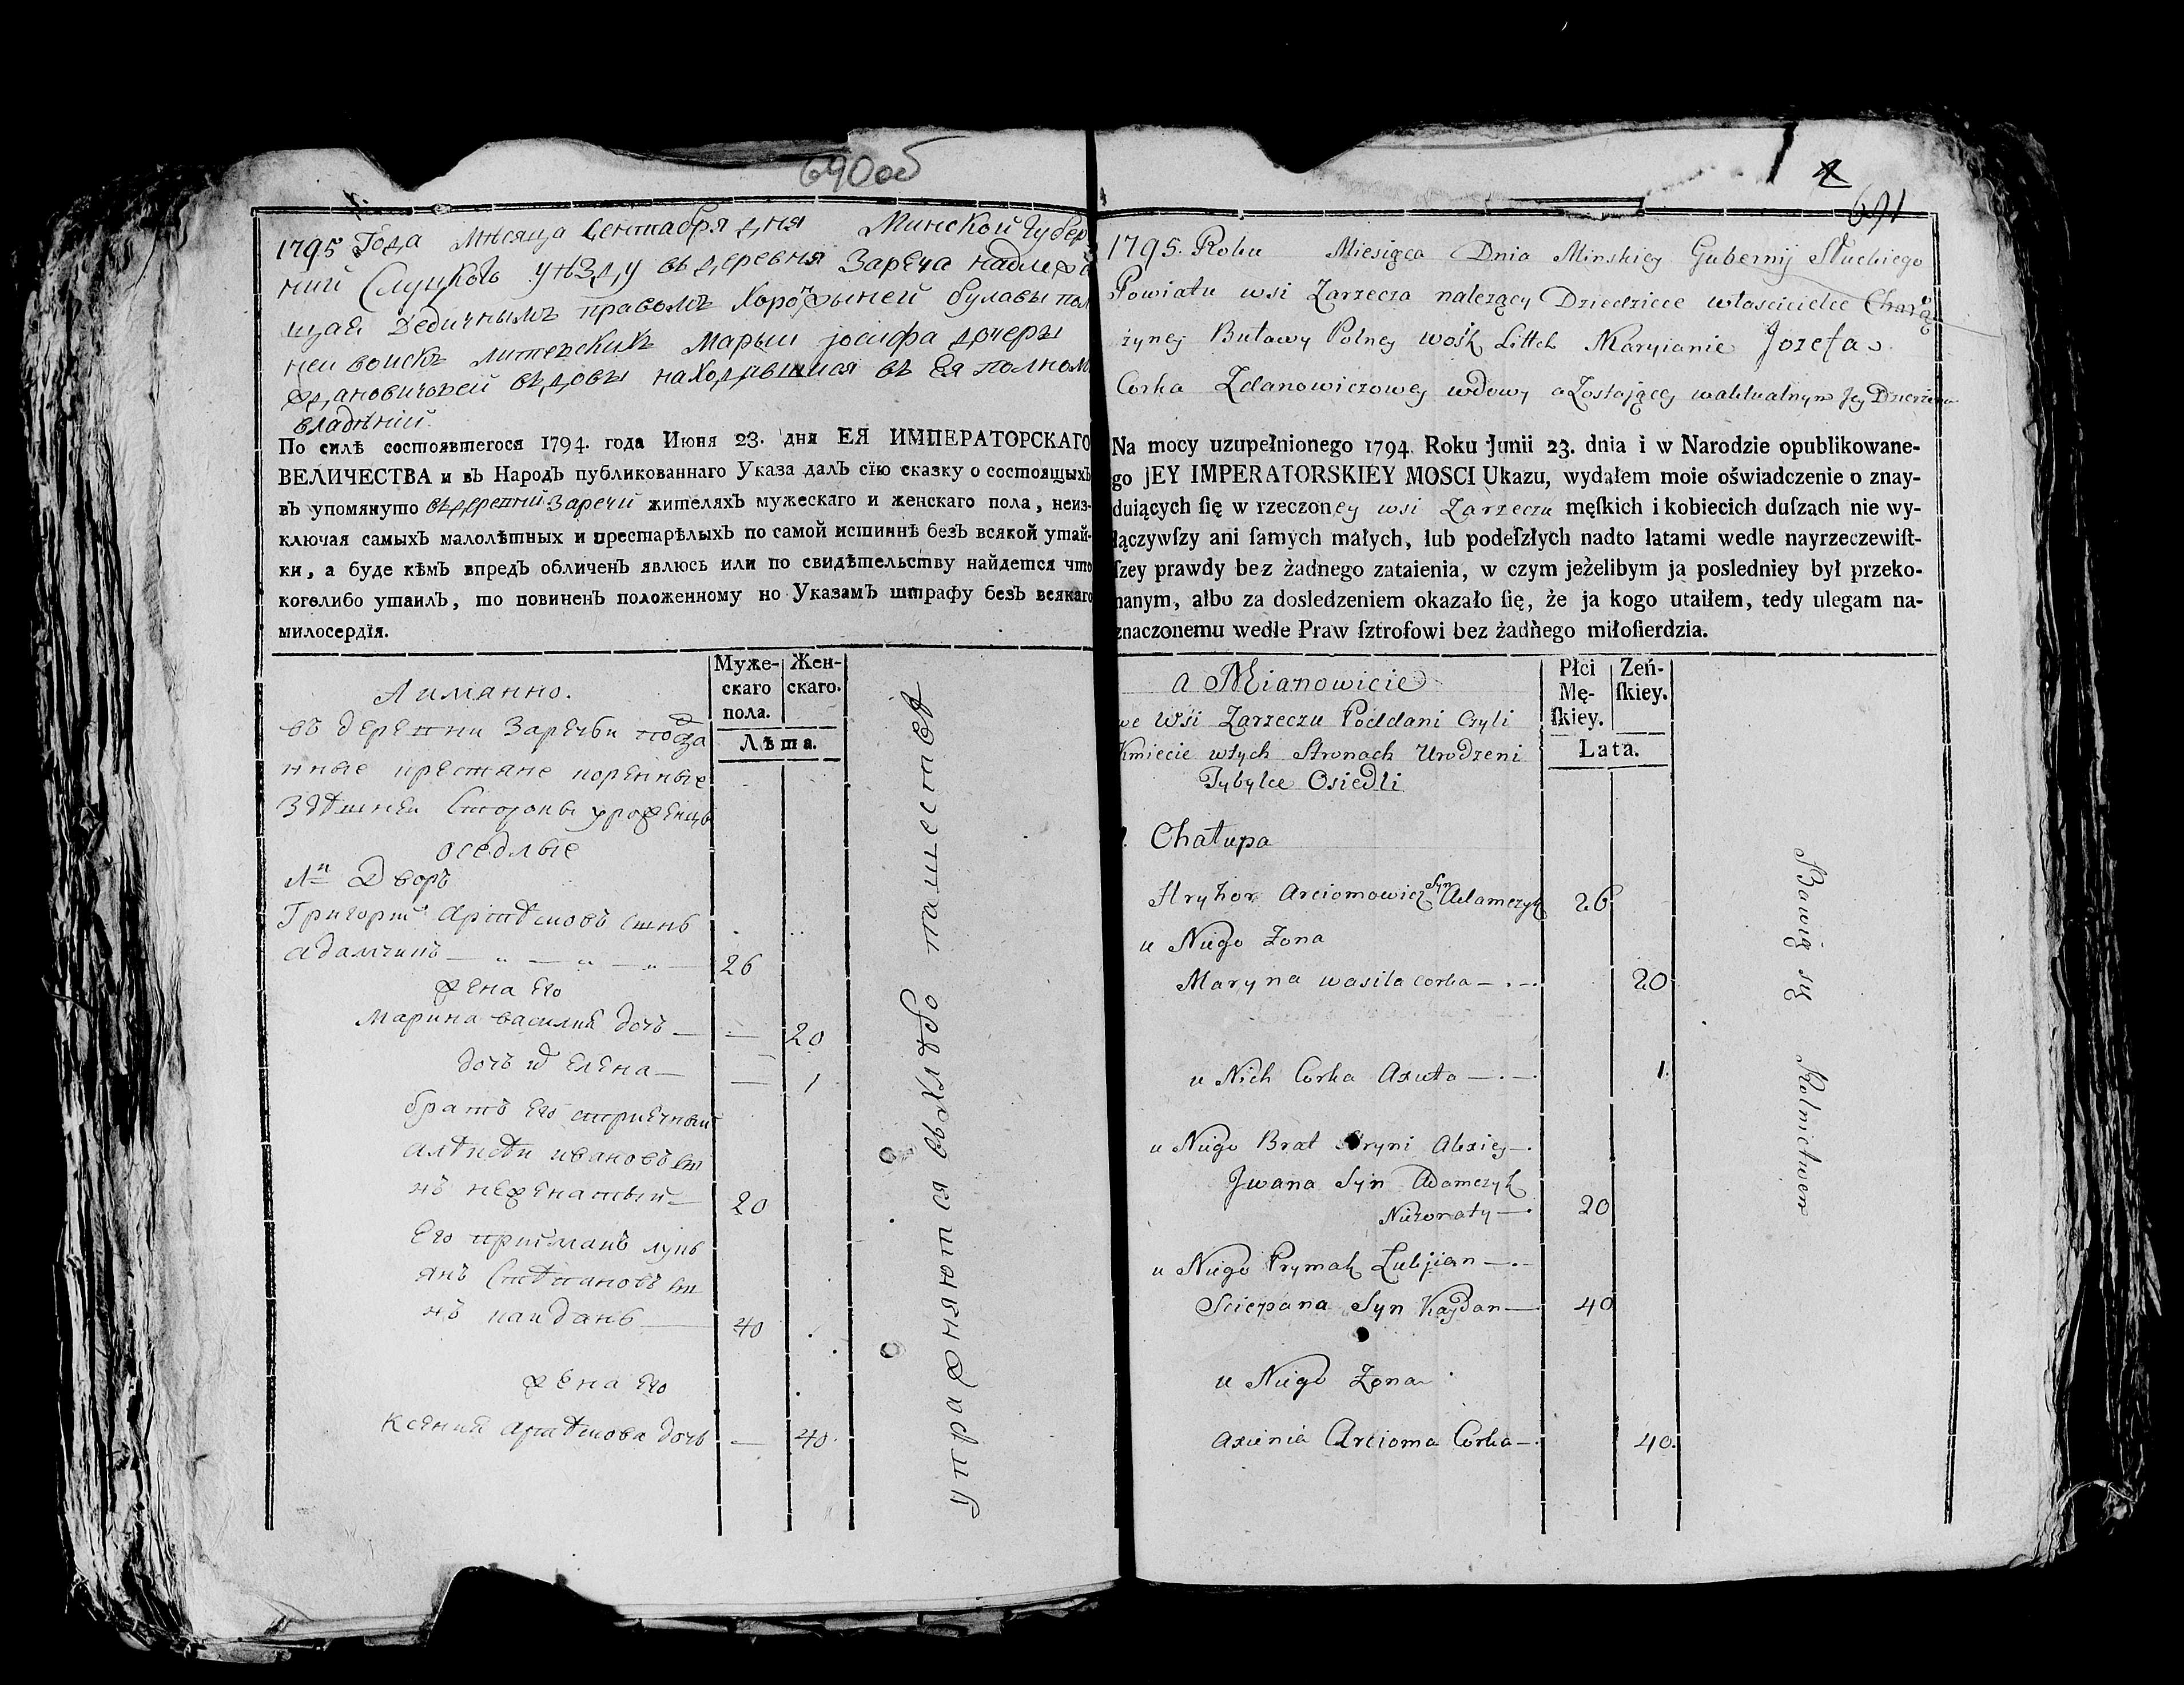 690об
1795 Года Мѣсяца Сентября дня Минской Губер
нии Слуцкого уѣзду въ деревня Зареча надлежа
щая Дедичнымъ правомъ Хорожыней булавы пол
ней войскъ литевскихъ Марыи јосифа дочеры
ждановичовей вѣдовы находявшиася въ Ея полном
владѣний.
По силѣ состоявшегося 1794. года Июня 23. дня ЕЯ ИМПЕРАТОРСКАГО
ВЕЛИЧЕСТВА и въ Народъ публикованнаго Указа далъ сїю сказку о состоящыхъ
въ упомянуто въ деревний Заречи жителяхъ мужескаго и женскаго пола, неиз-
ключая самыхъ малолѣтных и престарѣлыхъ по самой истиннѣ безъ всякой утай-
ки, а буде кѣмъ впредъ обличенъ явлюсь или по свидѣтельству найдется что
коголибо утаилъ, то повиненъ положенному по Указамъ штрафу безъ всякаго
милосердїя.
Муже-
скаго
пола.
Жен-
скаго.
Лѣта.
А иманно.
въ деревни Заречьи подда
нные крестяне коренные
здѣшней стороны уроженцы
оседлые
1й Дворъ
Григорий Артѣмовъ сынъ
адамчикъ 26
жена его
Марина василия дочь 20
дочь их Елена 1
братъ его стриечный
алѣксѣи ивановъ сы
нъ неженатый 20
его приймакъ лукь
янъ Стѣпановъ сы
нъ кайданъ 40
жена его
Ксения артѣмова дочь 40
упражняются въ хлѣбо пашество
691
1795. Roku Miesiąca Dnia Minskiey Gubernij Słuckiego
Powiatu wsi Zarzecza nalezący Dziedziece własciciełce Charą
zynej Buławy Polney woŝk Littch Maryianie Jozefa
Corka Zdanowiczowey wdowy a Zostającey waktualnym Jey Dzierzeniu
Na mocy uzupełnionego 1794. Roku Junii 23. dnia i w Narodzie opublikowane-
go jEY IMPERATORSKIEY MOSCI Ukazu, wydałem moie oświadczenie o znay-
duiących ſię w rzeczoney wsi Zarzeczu męſkich i kobiecich duſzach nie wy-
łączywſzy ani ſamych małych, lub podeſzłych nadto latami wedle nayrzeczewiſt-
ſzey prawdy bez żadnego zataienia, w czym jeżelibym ja posledniey był przeko-
nanym, albo za dosledzeniem okazało ſię, że ja kogo utaiłem, tedy ulegam na-
znaczonemu wedle Praw ſztrofowi bez żadnego miłoſierdzia.
Płci
Mę-
ſkiey.
Zeń-
ſkiey.
Lata.
a Mianowicie
we Wśi Zarzeczu Poddani Czyli
Kmiecie wtych Stronach Urodzeni
Tybylce Osiedli
1. Chałupa
Hryhor Arciomowicz Syn Adamczyk 26
u Niego Zona
Maryna wasila corka 20
u Nich Corka Axuta 1
u Niego Brat Stryni Alexiey
Jwana Syn Adamczyk
Nieżonaty 20
u Niego Prymak Łukjian
Sciepana Syn Kajdan 40
u Niego Zona
Axienia Arcioma Corka 40
Bawią sų Rolnictwem